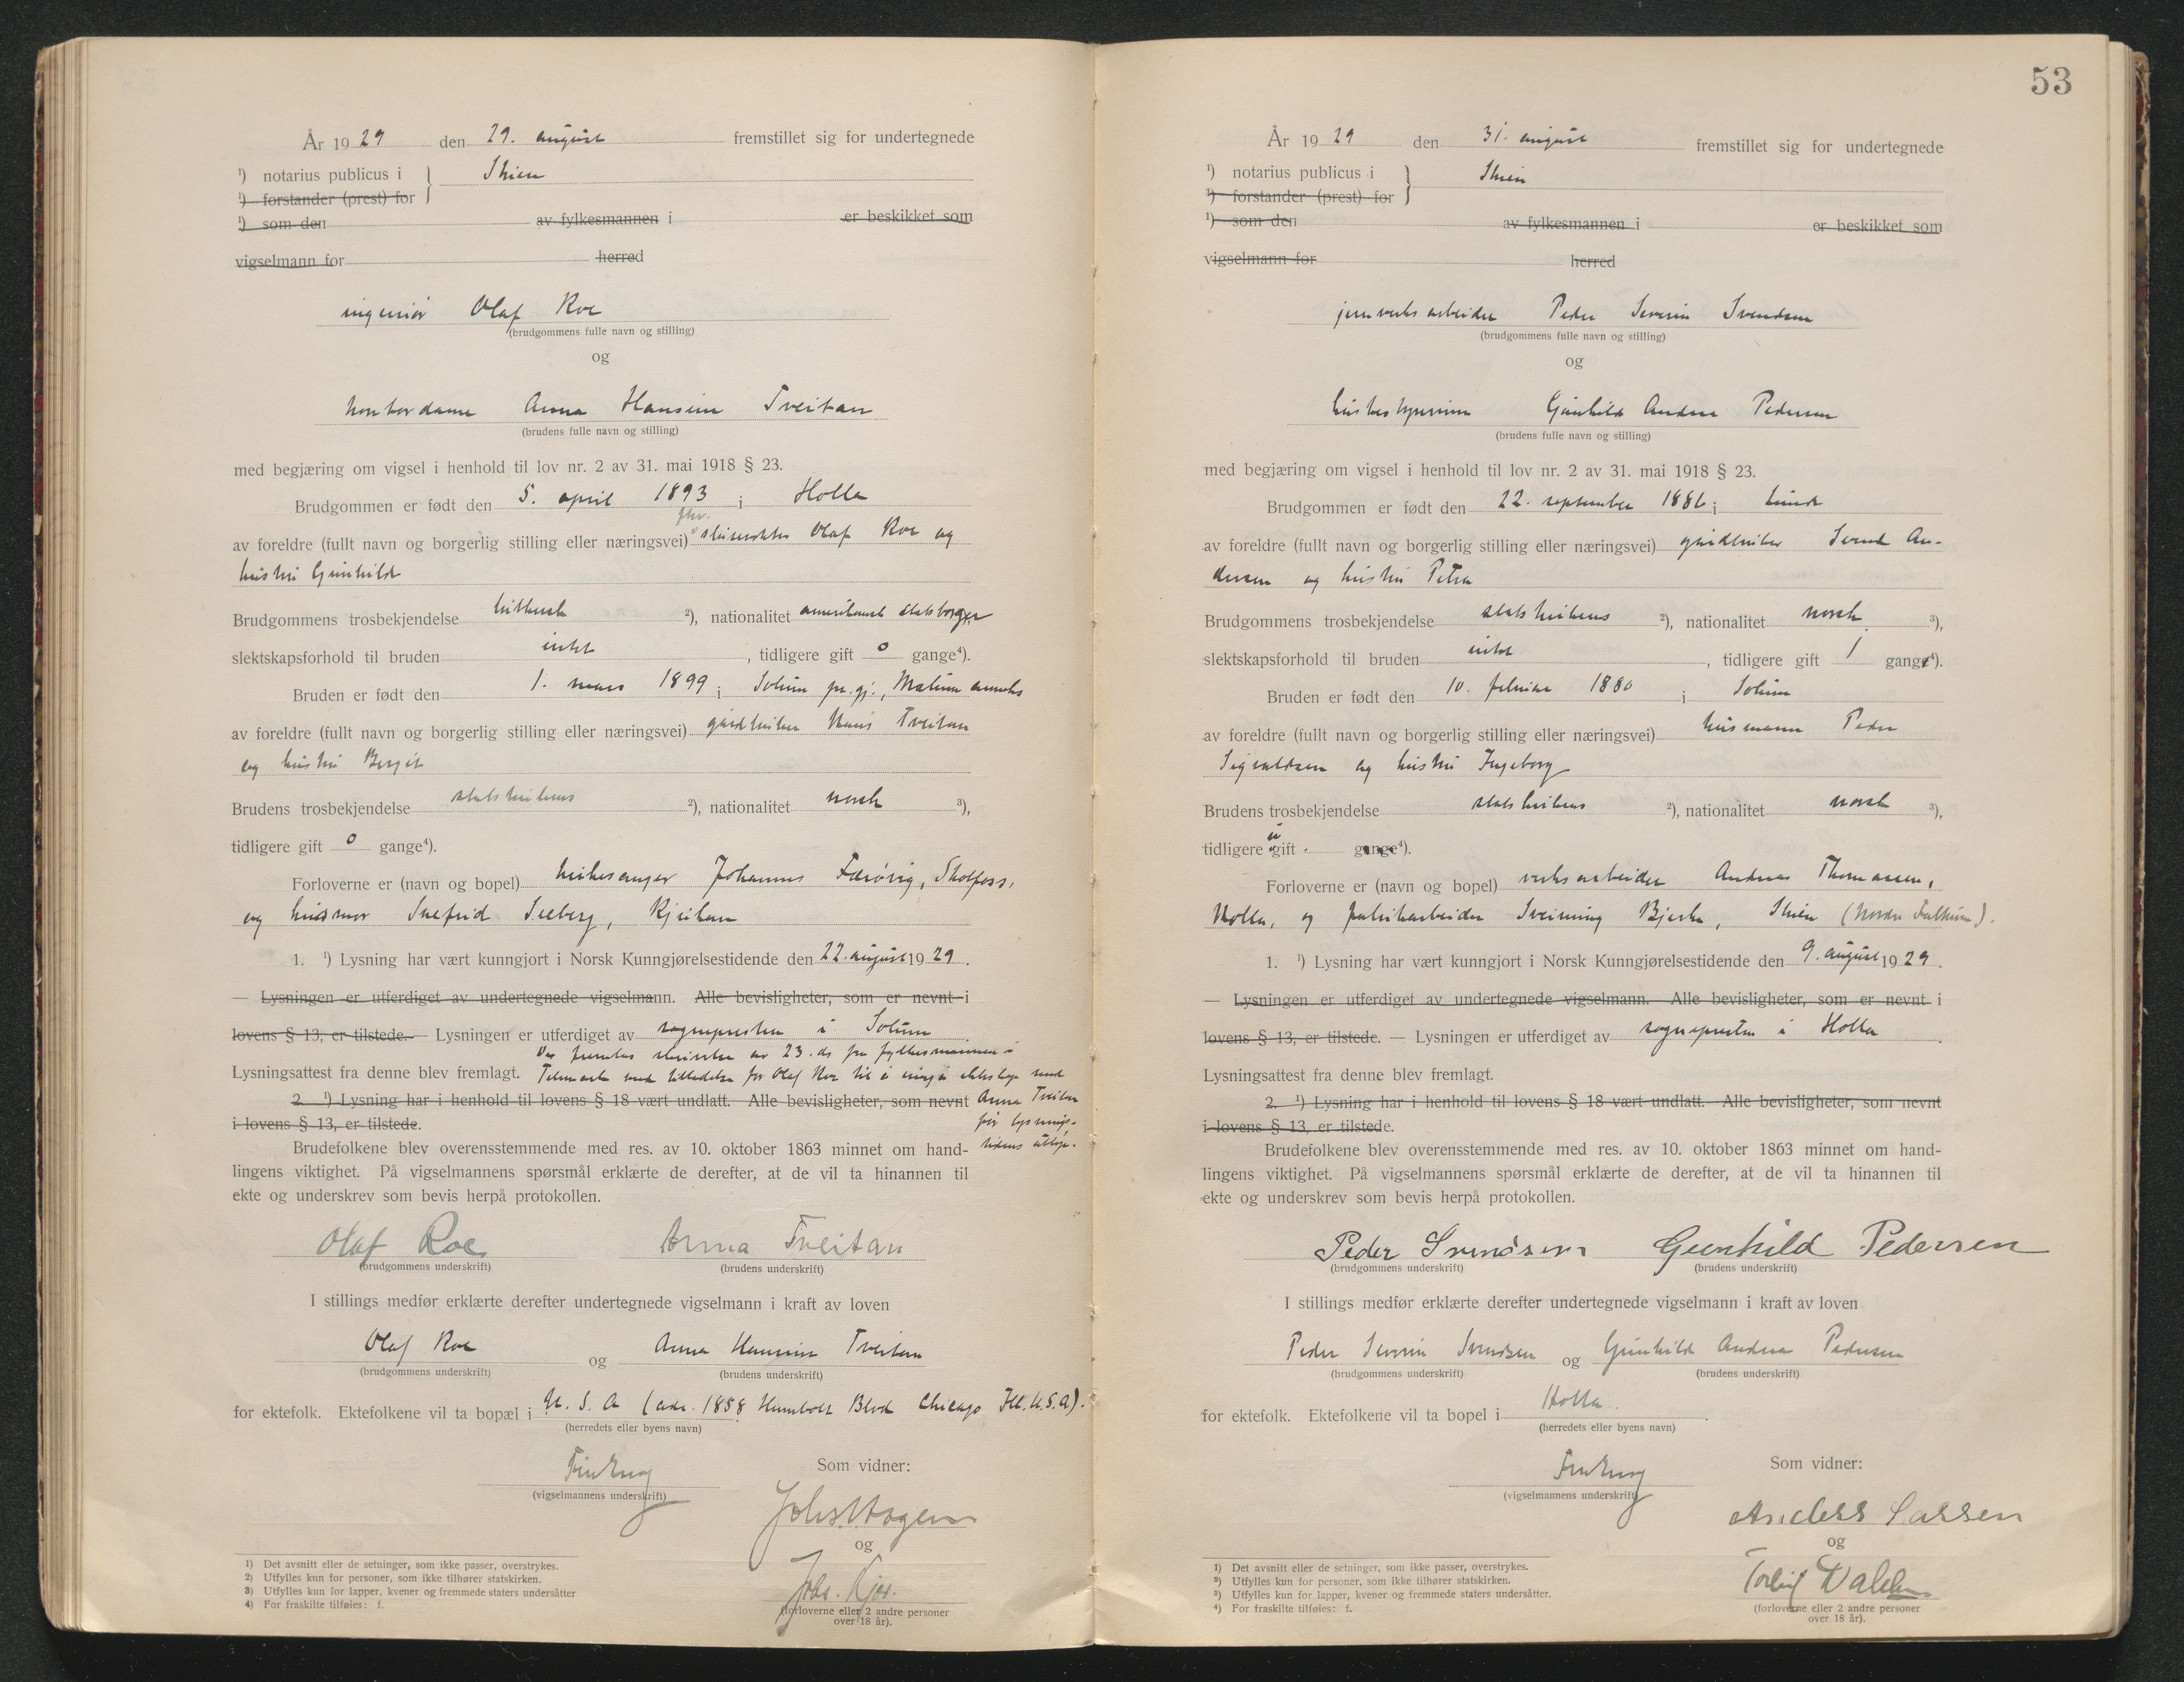 År 1929 den 29. august fremstillet sig for undertegnede
¹) notarius publicus i } Skien
¹) forstander (prest) for
¹) som den av fylkesmannen i er beskikket som
vigselmann for herred
ingeniør Olaf Roe
(brudgommens fulle navn og stilling)
og
kontordame Anna Hansine Tveitan
(brudens fulle navn og stilling)
med begjæring om vigsel i henhold til lov nr. 2 av 31. mai 1918 § 23.
Brudgommen er født den 5. april 1893 i Holla
fhv.
av foreldre (fullt navn og borgerlig stilling eller næringsvei) Olaf Roe og
hustru Gunhild
Brudgommens trosbekjendelse luthersk ²), nationalitet amerikansk statsborger
slektskapsforhold til bruden intet, tidligere gift 0 gange⁴).
Bruden er født den 1. mars 1899 i Solum pr.gj., Melum anneks
av foreldre (fullt navn og borgerlig stilling eller næringsvei) gårdbruker Hans Tveitan
og hustru Bergit
Brudens trosbekjendelse statskirkens ²), nationalitet norsk ³),
tidligere gift 0 gange⁴).
Forloverne er (navn og bopel) kirkesanger Johannes Færøvig, Skotfoss,
og husmor Snefrid Seeberg, Rjukan
1. ¹) Lysning har vært kunngjort i Norsk Kunngjørelsestidende den 22. august 1929.
— Lysningen er utferdiget av undertegnede vigselmann. Alle bevisligheter, som er nevnt i
lovens § 13, er tilstede. — Lysningen er utferdiget av sognepresten i Solum
Der fremlas skrivelse av 23. ds fra fylkesmannen i
Lysningsattest fra denne blev fremlagt. Telemark med tilladelse for Olaf Roe til å inngå ekteskap med
2. ¹) Lysning har i henhold til lovens § 18 vært undlatt. Alle bevisligheter, som nevnt Anna Tveitan
i lovens § 13, er tilstede. før lysnings-
Brudefolkene blev overensstemmende med res. av 10. oktober 1863 minnet om hand- tidens utløp.
lingens viktighet. På vigselmannens spørsmål erklærte de derefter, at de vil ta hinannen til
ekte og underskrev som bevis herpå protokollen.
Olaf Roe Anna Tveitan
(brudgommens underskrift) (brudens underskrift)
I stillings medfør erklærte derefter undertegnede vigselmann i kraft av loven
Olaf Roe og Anna Hansine Tveitan
(brudgommens underskrift) (brudens underskrift)
for ektefolk. Ektefolkene vil ta bopæl i U. S. A (adr. 1858 Humbolt Blvd Chicago Ill. U.S.A).
(herredets eller byens navn)
Som vidner:
(vigselmannens underskrift)
Johs. Hagen
og
Johs.
(forloverne eller 2 andre personer
over 18 år).
1) Det avsnitt eller de setninger, som ikke passer, overstrykes.
2) Utfylles kun for personer, som ikke tilhører statskirken.
3) Utfylles kun for lapper, kvener og fremmede staters undersåtter
4) For fraskilte tilføies: f.
53
År 1929 den 31. august fremstillet sig for undertegnede
¹) notarius publicus i } Skien
¹) forstander (prest) for
¹) som den av fylkesmannen i er beskikket som
vigselmann for herred
jernverksarbeider Peder Severin Svendsen
(brudgommens fulle navn og stilling)
og
husbestyrerinne Gunhild Andrea Pedersen
(brudens fulle navn og stilling)
med begjæring om vigsel i henhold til lov nr. 2 av 31. mai 1918 § 23.
Brudgommen er født den 22. september 1886 i Lunde
av foreldre (fullt navn og borgerlig stilling eller næringsvei) gårdbruker Svend An-
dersen og hustru Petra
Brudgommens trosbekjendelse statskirkens ²), nationalitet norsk ³),
slektskapsforhold til bruden intet, tidligere gift 1 gang⁴).
Bruden er født den 10. februar 1880 i Solum
av foreldre (fullt navn og borgerlig stilling eller næringsvei) husmann Peder
Sigvaldsen og hustru Ingeborg
Brudens trosbekjendelse statskirkens ²), nationalitet norsk ³),
tidligere gift gange⁴).
Forloverne er (navn og bopel) verksarbeider Andreas Thomassen,
Holla, og fabrikarbeider Sveinung Bjerke, Skien (Nordre Falkum).
1. ¹) Lysning har vært kunngjort i Norsk Kunngjørelsestidende den 9. august 1929.
— Lysningen er utferdiget av undertegnede vigselmann. Alle bevisligheter, som er nevnt i
lovens § 13, er tilstede. — Lysningen er utferdiget av sognepresten i Holla.
Lysningsattest fra denne blev fremlagt.
2. ¹) Lysning har i henhold til lovens § 18 vært undlatt. Alle bevisligheter, som nevnt
i lovens § 13, er tilstede.
Brudefolkene blev overensstemmende med res. av 10. oktober 1863 minnet om hand-
lingens viktighet. På vigselmannens spørsmål erklærte de derefter, at de vil ta hinannen til
ekte og underskrev som bevis herpå protokollen.
Peder Svendsen Gunhild Pedersen
(brudgommens underskrift) (brudens underskrift)
I stillings medfør erklærte derefter undertegnede vigselmann i kraft av loven
Peder Severin Svendsen og Gunhild Andrea Pedersen
(brudgommens underskrift) (brudens underskrift)
for ektefolk. Ektefolkene vil ta bopel i Holla.
(herredets eller byens navn)
Som vidner:
(vigselmannens underskrift)
Anders Larsen
og
Torleif Dahlen
(forloverne eller 2 andre personer
over 18 år).
1) Det avsnitt eller de setninger, som ikke passer, overstrykes.
²) Utfylles kun for personer, som ikke tilhører statskirken.
³) Utfylles kun for lapper, kvener og fremmede staters undersåtter.
⁴) For fraskilte tilføies: f.